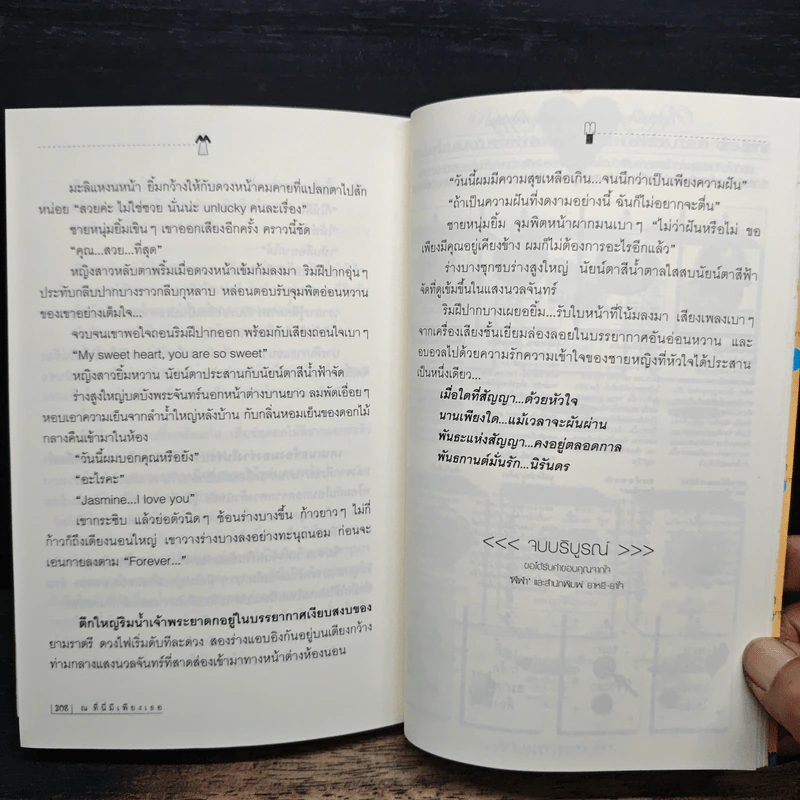 มะลิแหงนหน้า ยิ้มกว้างให้กับดวงหน้าคมคายที่แปลกตาไปสัก
หน่อย “สวยค่ะ ไม่ใช่ซวย นั่นน่ะ unlucky คนละเรื่อง”
ชายหนุ่มยิ้มเขิน ๆ เขาออกเสียงอีกครั้ง คราวนี้ชัด
“คุณ...สวย...ที่สุด”
หญิงสาวหลับตาพริ้มเมื่อดวงหน้าเข้มก้มลงมา ริมฝีปากอุ่น ๆ
ประทับกลีบปากบางราวกลีบกุหลาบ หล่อนตอบรับจุมพิตอ่อนหวาน
ของเขาอย่างเต็มใจ...
จวบจนเขาพอใจถอนริมฝีปากออก พร้อมกับเสียงถอนใจเบา ๆ
“My sweet heart, you are so sweet”
หญิงสาวยิ้มหวาน นัยน์ตาประสานกับนัยน์ตาสีน้ำฟ้าจัด
ร่างสูงใหญ่บดบังพระจันทร์นอกหน้าต่างบานยาว ลมพัดเอื่อย ๆ
หอบเอาความเย็นจากลำน้ำใหญ่หลังบ้าน กับกลิ่นหอมเย็นของดอกไม้
กลางคืนเข้ามาในห้อง
“วันนี้ผมบอกคุณหรือยัง”
“อะไรคะ”
“Jasmine...I love you”
เขากระซิบ แล้วย่อตัวนิด ๆ ช้อนร่างบางขึ้น ก้าวยาว ๆ ไม่กี่
ก้าวก็ถึงเตียงนอนใหญ่ เขาวางร่างบางลงอย่างทะนุถนอม ก่อนจะ
เอนกายลงตาม “Forever...”
ตึกใหญ่ริมน้ำเจ้าพระยาตกอยู่ในบรรยากาศเงียบสงบของ
ยามราตรี ดวงไฟเริ่มดับทีละดวง สองร่างแอบอิงกันอยู่บนเตียงกว้าง
ท่ามกลางแสงนวลจันทร์ที่สาดส่องเข้ามาทางหน้าต่างห้องนอน
|308| ณ ที่นี้มีเพียงเธอ
“วันนี้ผมมีความสุขเหลือเกิน...จนนึกว่าเป็นเพียงความฝัน”
“ถ้าเป็นความฝันที่งดงามอย่างนี้ ฉันก็ไม่อยากจะตื่น”
ชายหนุ่มยิ้ม จุมพิตหน้าผากมนเบา ๆ “ไม่ว่าฝันหรือไม่ ขอ
เพียงมีคุณอยู่เคียงข้าง ผมก็ไม่ต้องการอะไรอีกแล้ว”
ร่างบางซุกซบร่างสูงใหญ่ นัยน์ตาสีน้ำตาลใสสบนัยน์ตาสีฟ้า
จัดที่ดูเข้มขึ้นในแสงนวลจันทร์
ริมฝีปากบางเผยอยิ้ม...รับใบหน้าที่โน้มลงมา เสียงเพลงเบา ๆ
จากเครื่องเสียงชั้นเยี่ยมล่องลอยในบรรยากาศอันอ่อนหวาน และ
อบอวลไปด้วยความรักความเข้าใจของชายหญิงที่หัวใจได้ประสาน
เป็นหนึ่งเดียว...
เมื่อใดที่สัญญา...ด้วยหัวใจ
นานเพียงใด...แม้เวลาจะผันผ่าน
พันธะแห่งสัญญา...คงอยู่ตลอดกาล
พันธกานต์มั่นรัก...นิรันดร
<<< จบบริบูรณ์ >>>
ขอได้รับคำขอบคุณจากใจ